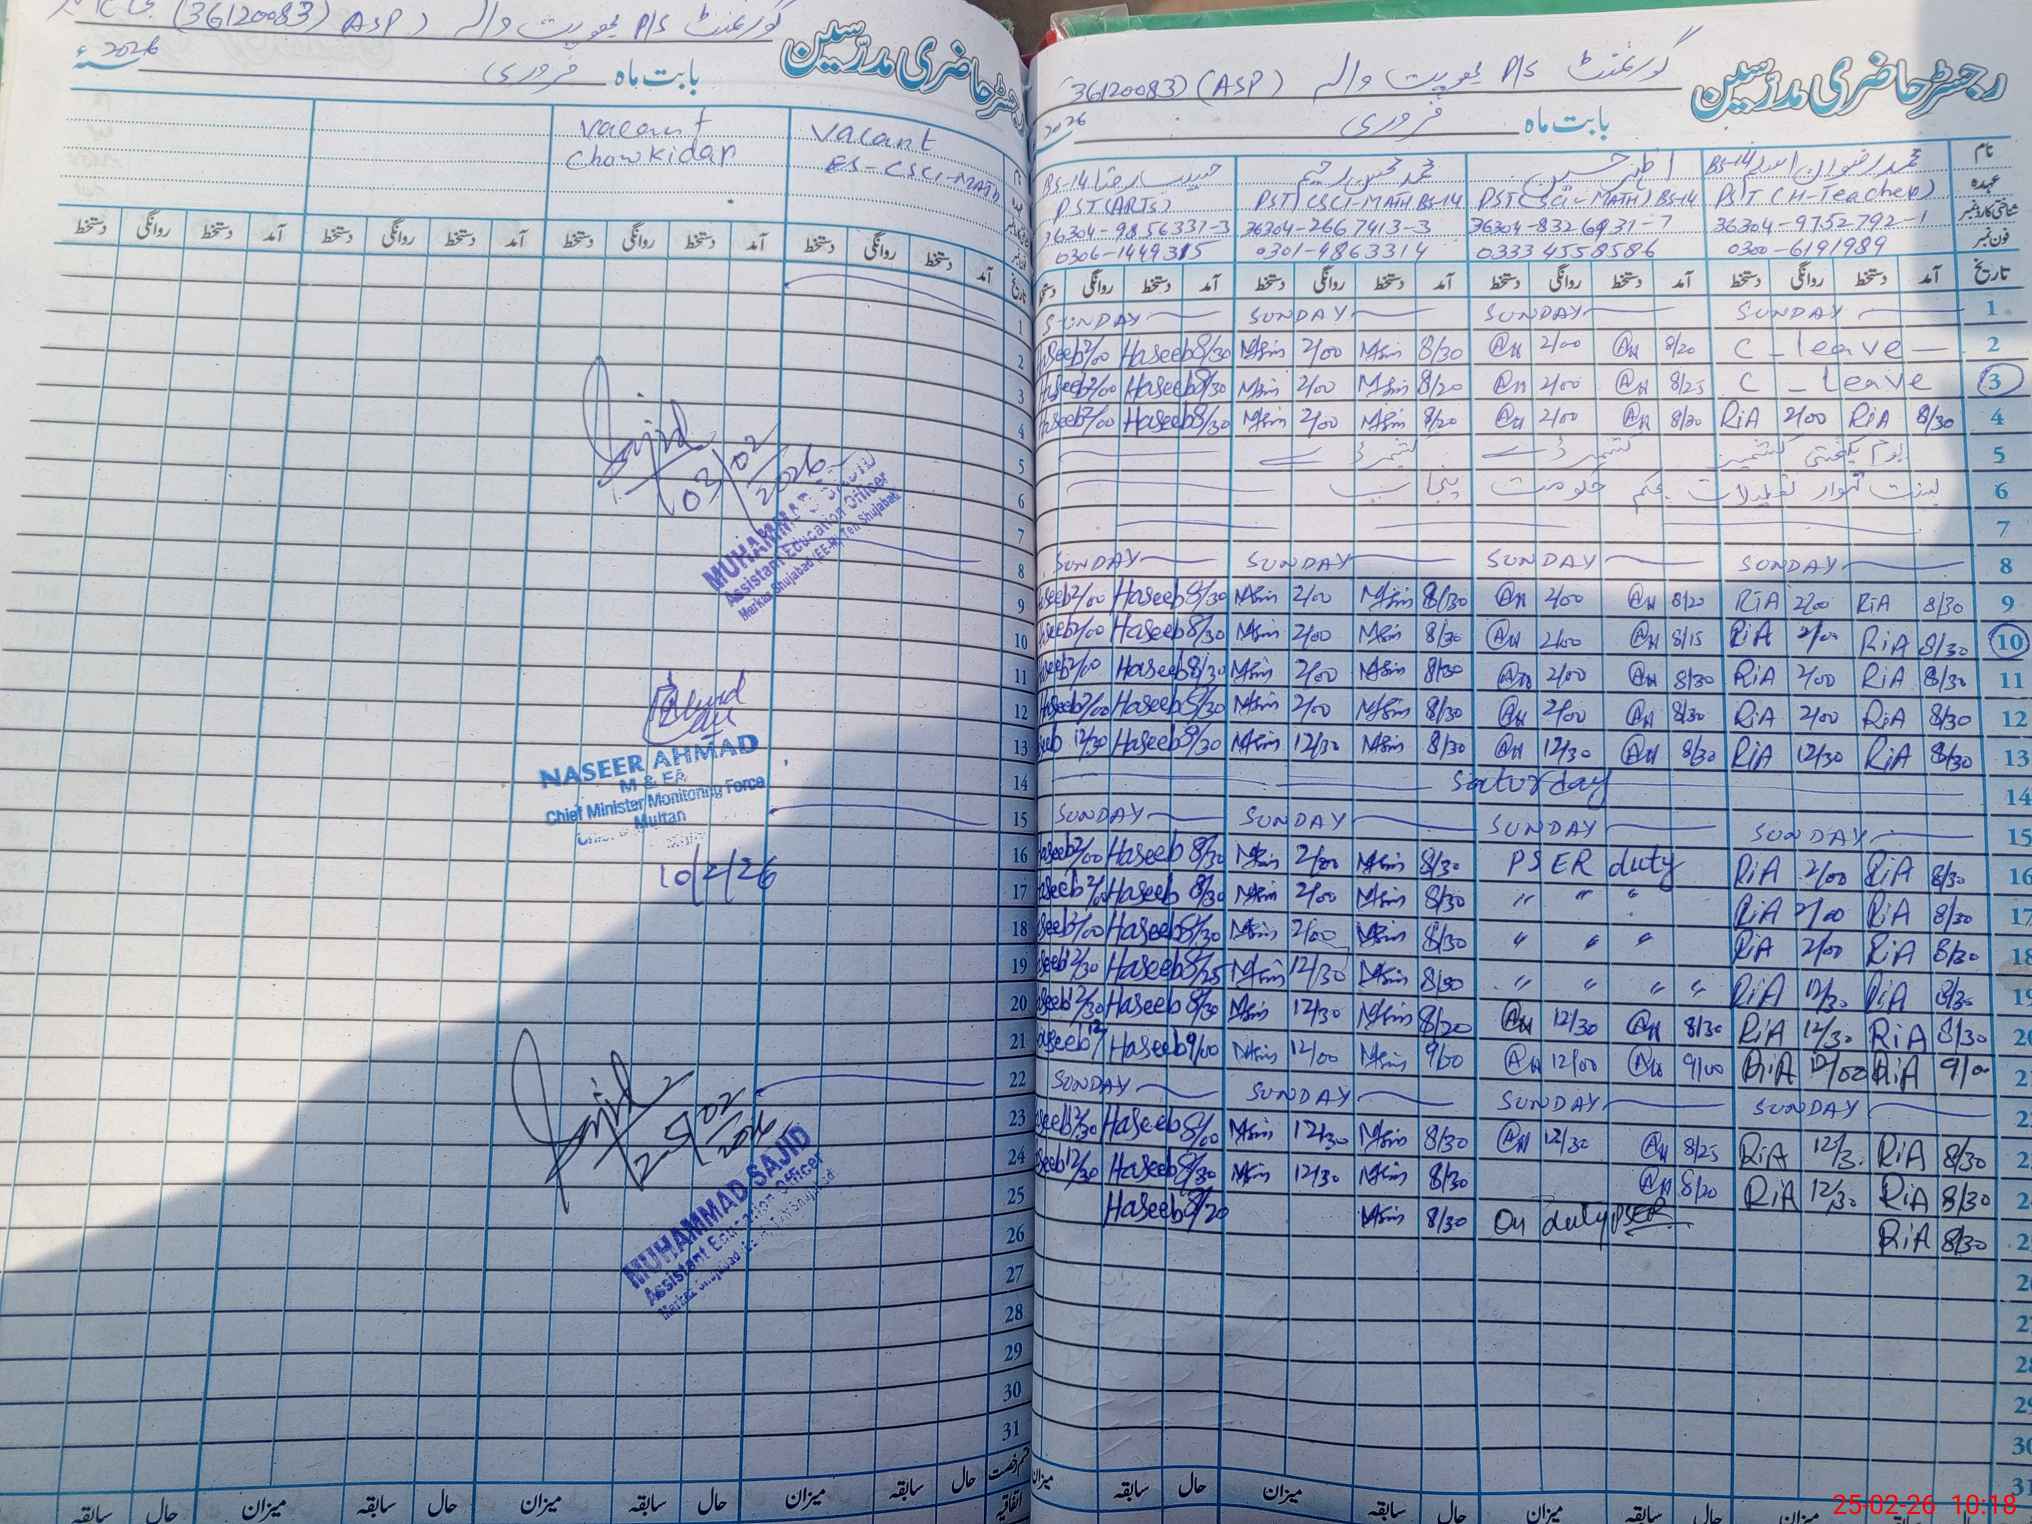 رجسٹر حاضری مدرسین
گورنمنٹ P/S والہ (ASP) (36120083)
بابت ماہ فروری 2026
نام
عہدہ
شناختی کارڈ نمبر
فون نمبر
محمد رضوان اسلم BS-14
PST (H-Teacher)
36304-9752792-1
0300-6191989
اظہر حسین
PST (SCI-MATH) BS-14
36304-8326931-7
0333 4558586
PST (SCI-MATH BS-14
36304-2667413-3
0301-4863314
BS-14
PST (ARTS)
36304-9856337-3
0306-1449315
تاریخ آمد دستخط روانگی دستخط آمد دستخط روانگی دستخط آمد دستخط روانگی دستخط آمد دستخط روانگی دستخط
1 SUNDAY SUNDAY SUNDAY SUNDAY
2 C-leave 8/20 2/00 8/30 2/00 8/30 Haseeb 2/00 Haseeb
3 C-leave 8/25 2/00 8/20 2/00 8/30 Haseeb 2/00 Haseeb
4 8/30 RiA 2/00 RiA 8/20 2/00 8/20 2/00 8/30 Haseeb 2/00 Haseeb
5 یوم یکجہتی کشمیر کشمیر ڈے کشمیر ڈے
6 بسنت تہوار تعطیلات بحکم حکومت پنجاب
7
8 SUNDAY SUNDAY SUNDAY SUNDAY
9 8/30 RiA 2/00 RiA 8/20 2/00 8/30 2/00 8/30 Haseeb 2/00
10 8/30 RiA 2/00 RiA 8/15 2/00 8/30 2/00 8/30 Haseeb 2/00
11 8/30 RiA 2/00 RiA 8/30 2/00 8/30 2/00 8/30 Haseeb 2/00
12 8/30 RiA 2/00 RiA 8/30 2/00 8/30 2/00 8/30 Haseeb 2/00
13 8/30 RiA 12/30 RiA 8/30 12/30 8/30 12/30 8/30 Haseeb 12/30
14 Saturday
15 SUNDAY SUNDAY SUNDAY SUNDAY
16 8/30 RiA 2/00 RiA PSER duty 8/30 2/00 8/30 Haseeb 2/00
17 8/30 RiA 2/00 RiA " " " 8/30 2/00 8/30 Haseeb 2/00
18 8/30 RiA 2/00 RiA " " " 8/30 2/00 8/30 Haseeb 2/00
19 8/30 RiA 12/30 RiA " " " " 8/30 12/30 8/25 Haseeb 12/30
20 8/30 RiA 12/30 RiA 8/30 12/30 8/20 12/30 8/30 Haseeb 12/30
21 9/00 RiA 12/00 RiA 9/00 12/00 9/00 12/00 9/00 Haseeb
22 SUNDAY SUNDAY SUNDAY SUNDAY
23 8/30 RiA 12/3 RiA 8/25 12/30 8/30 12/30 8/00 Haseeb 12/30
24 8/30 RiA 12/30 RiA 8/20 8/30 12/30 8/30 Haseeb 12/30
25 8/30 RiA On duty PSER 8/30 8/20 Haseeb
26
27
28
29
30
31
میزان حال سابقہ میزان حال سابقہ میزان حال سابقہ میزان
رجسٹر حاضری مدرسین
گورنمنٹ P/S والہ (ASP) (36120083)
بابت ماہ فروری 2026ء
Vacant
ES-CSCI-MATH
Vacant
Chowkidar
تاریخ آمد دستخط روانگی دستخط آمد دستخط روانگی دستخط آمد دستخط روانگی دستخط آمد دستخط روانگی دستخط
1
2
3
4
5
6
7
8
9
10
11
12
13
14
15
16
17
18
19
20
21
22
23
24
25
26
27
28
29
30
31
Sajid
03/02/2026
MUHAMMAD SAJID
Assistant Education Officer
Markaz Shujabad (EE-M) Teh Shujabad
NASEER AHMAD
M & EA
Chief Minister Monitoring Force
Multan
10/2/26
Sajid
25/02/2026
MUHAMMAD SAJID
Assistant Education Officer
رخصت اتفاقیہ
حال سابقہ میزان حال سابقہ میزان حال سابقہ میزان حال سابقہ
25-02-26 10:18